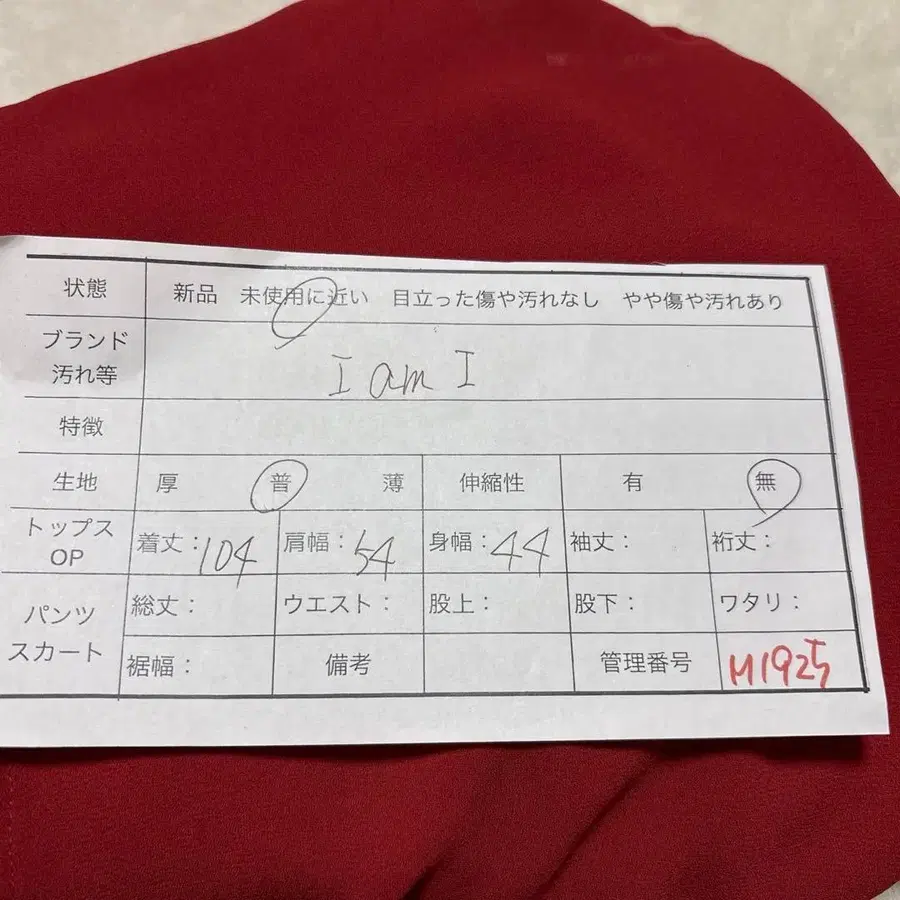 状態 新品 未使用に近い 目立った傷や汚れなし やや傷や汚れあり
ブランド
汚れ等 I am I
特徴
生地 厚 普 薄 伸縮性 有 無
トップス
OP 着丈：104 肩幅：54 身幅：44 袖丈： 裄丈：
パンツ
スカート
総丈： ウエスト： 股上： 股下： ワタリ：
裾幅： 備考 管理番号 M1925